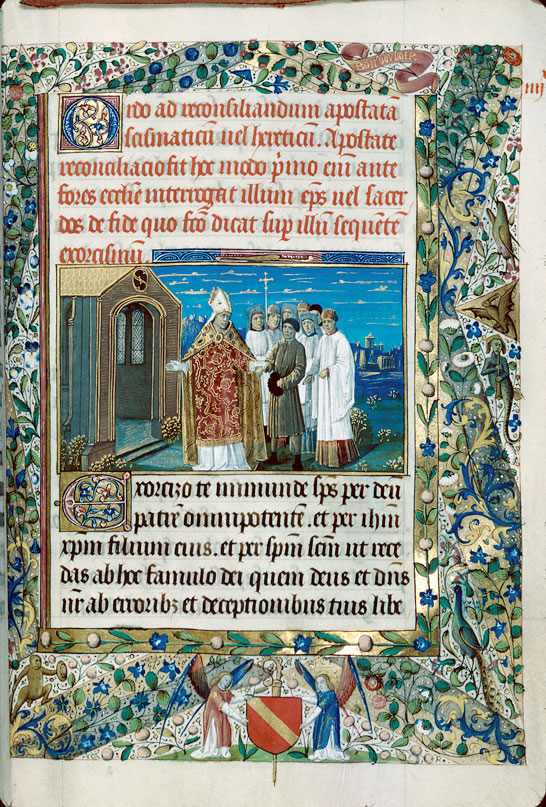 BON VOVLOIR
iiij
Ordo ad reconsiliandum apostatā
scismaticū uel hereticū. Apostate
reconciliacio fit hoc modo p̄ino eni ante
fores ecclie interrogat illum ep̄s uel sacer
dos de fide quo fc̄o dicat sup̱ illū sequētē
exorcismū
Exorcizo te immunde sp̄s per deū
patrē omnipotentē. et per ihm̄
xp̄m filium eius. et per sp̄m sc̄m ut rece
das ab hoc famulo dei quem deus et dn̄s
nr̄ ab erroribꝫ et deceptionibus tuis libe